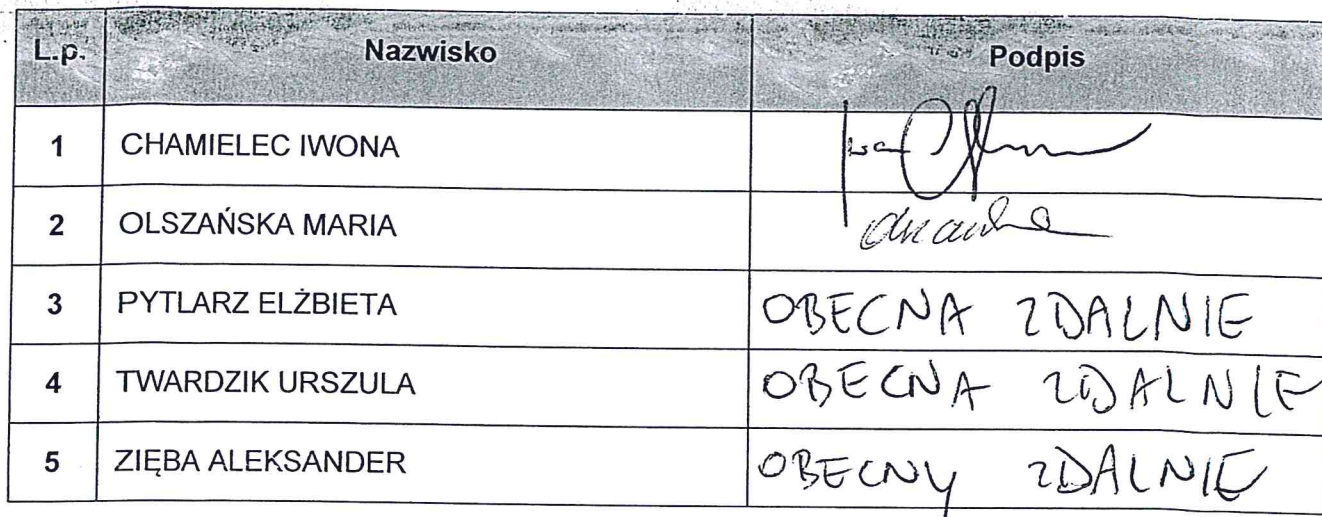 L.p. Nazwisko Podpis
1 CHAMIELEC IWONA
2 OLSZAŃSKA MARIA
3 PYTLARZ ELŻBIETA OBECNA ZDALNIE
4 TWARDZIK URSZULA OBECNA ZDALNIE
5 ZIĘBA ALEKSANDER OBECNY ZDALNIE